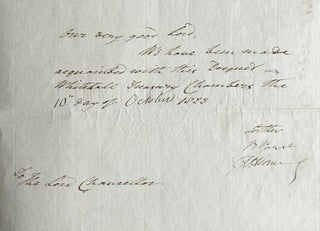 Our very good Lord.
We have been made
acquainted with this Request
Whitehall Treasury Chambers the
10 day of October 1833
To
The Lord Chancellor